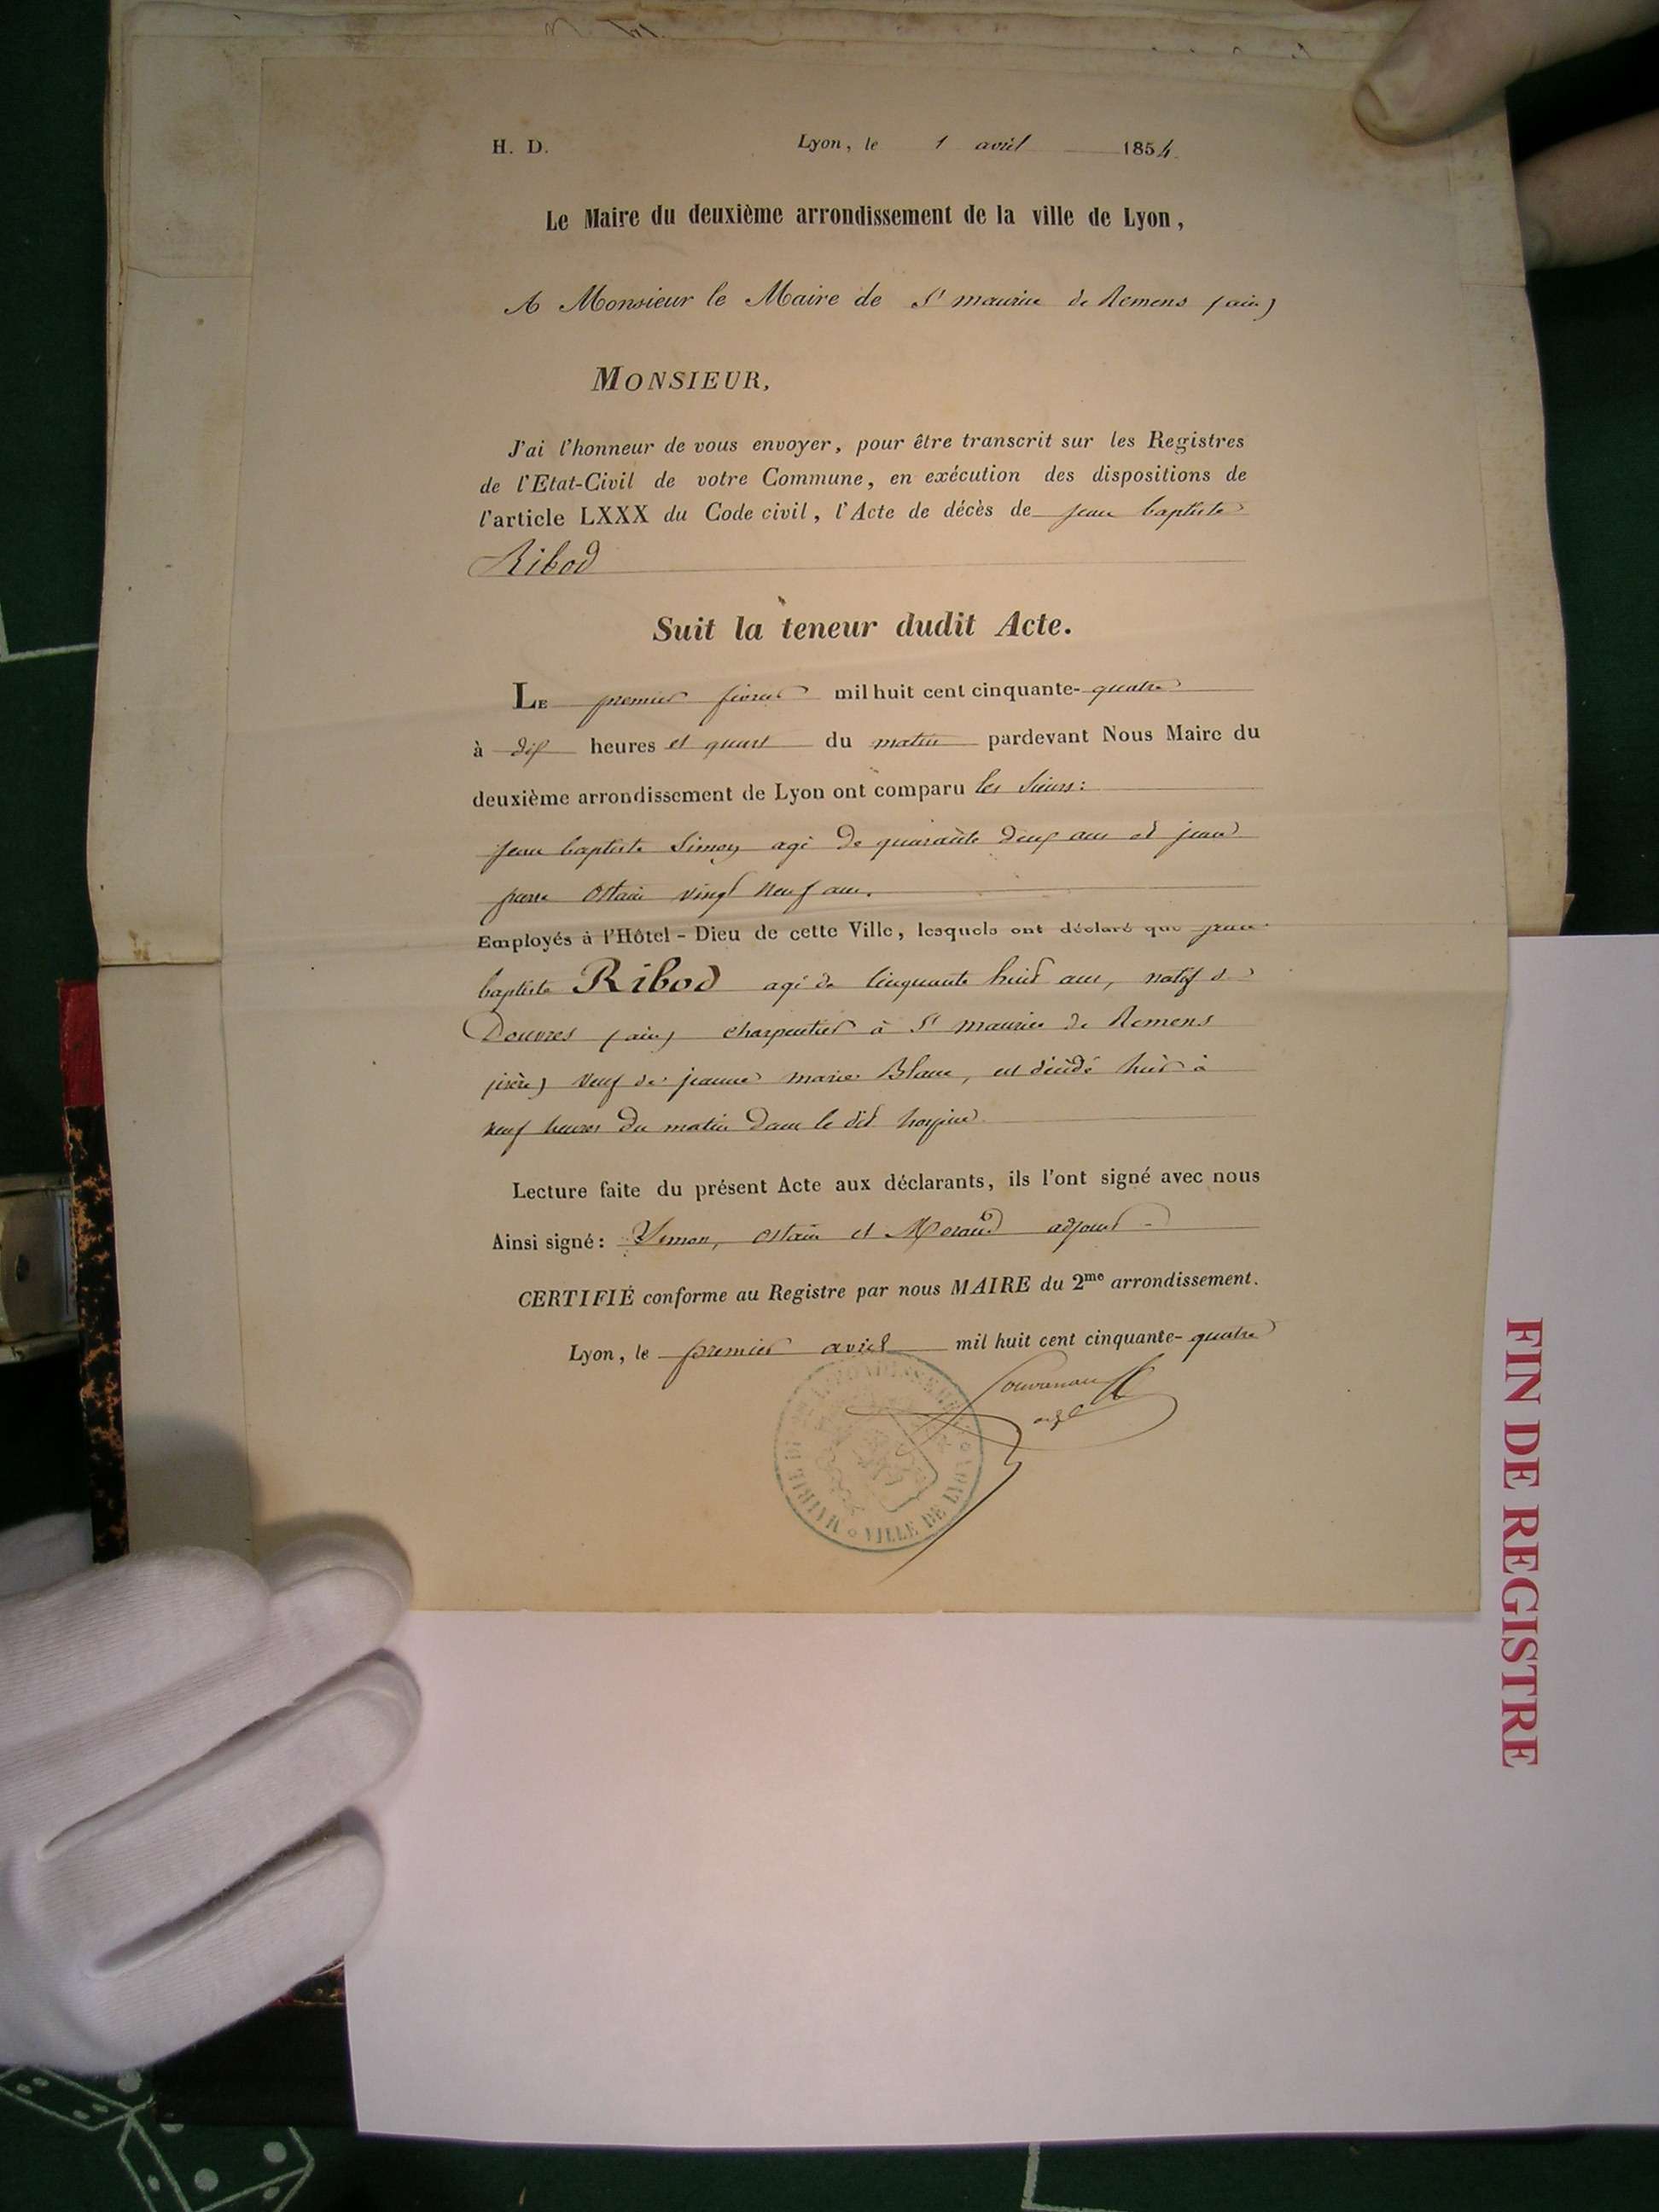 H. D. Lyon, le 1 avril 1854.
Le Maire du deuxième arrondissement de la ville de Lyon,
A Monsieur le Maire de St maurice de Remens (ain)
MONSIEUR,
J'ai l'honneur de vous envoyer, pour être transcrit sur les Registres
de l'Etat-Civil de votre Commune, en exécution des dispositions de
l'article LXXX du Code civil, l'Acte de décès de jean baptiste
Ribod
Suit la teneur dudit Acte.
LE premier fevrier mil huit cent cinquante-quatre
à dix heures et quart du matin pardevant Nous Maire du
deuxième arrondissement de Lyon ont comparu les sieurs:
jean baptiste Simon agé de quarante deux ans et jean
pierre vingt neuf ans.
Employés à l'Hôtel-Dieu de cette Ville, lesquels ont déclaré que jean
baptiste Ribod agé de cinquante huit ans, natif de
Douvres (ain) charpentier à St maurice de Remens
(isère) veuf de jeanne marie Blanc, est décédé hier à
neuf heures du matin dans le dit hospice
Lecture faite du présent Acte aux déclarants, ils l'ont signé avec nous
Ainsi signé: Simon, et Morand adjoint
CERTIFIÉ conforme au Registre par nous MAIRE du 2me arrondissement.
Lyon, le premier avril mil huit cent cinquante-quatre
MAIRIE DU ARRONDISSEMENT
VILLE DE LYON
FIN DE REGISTRE